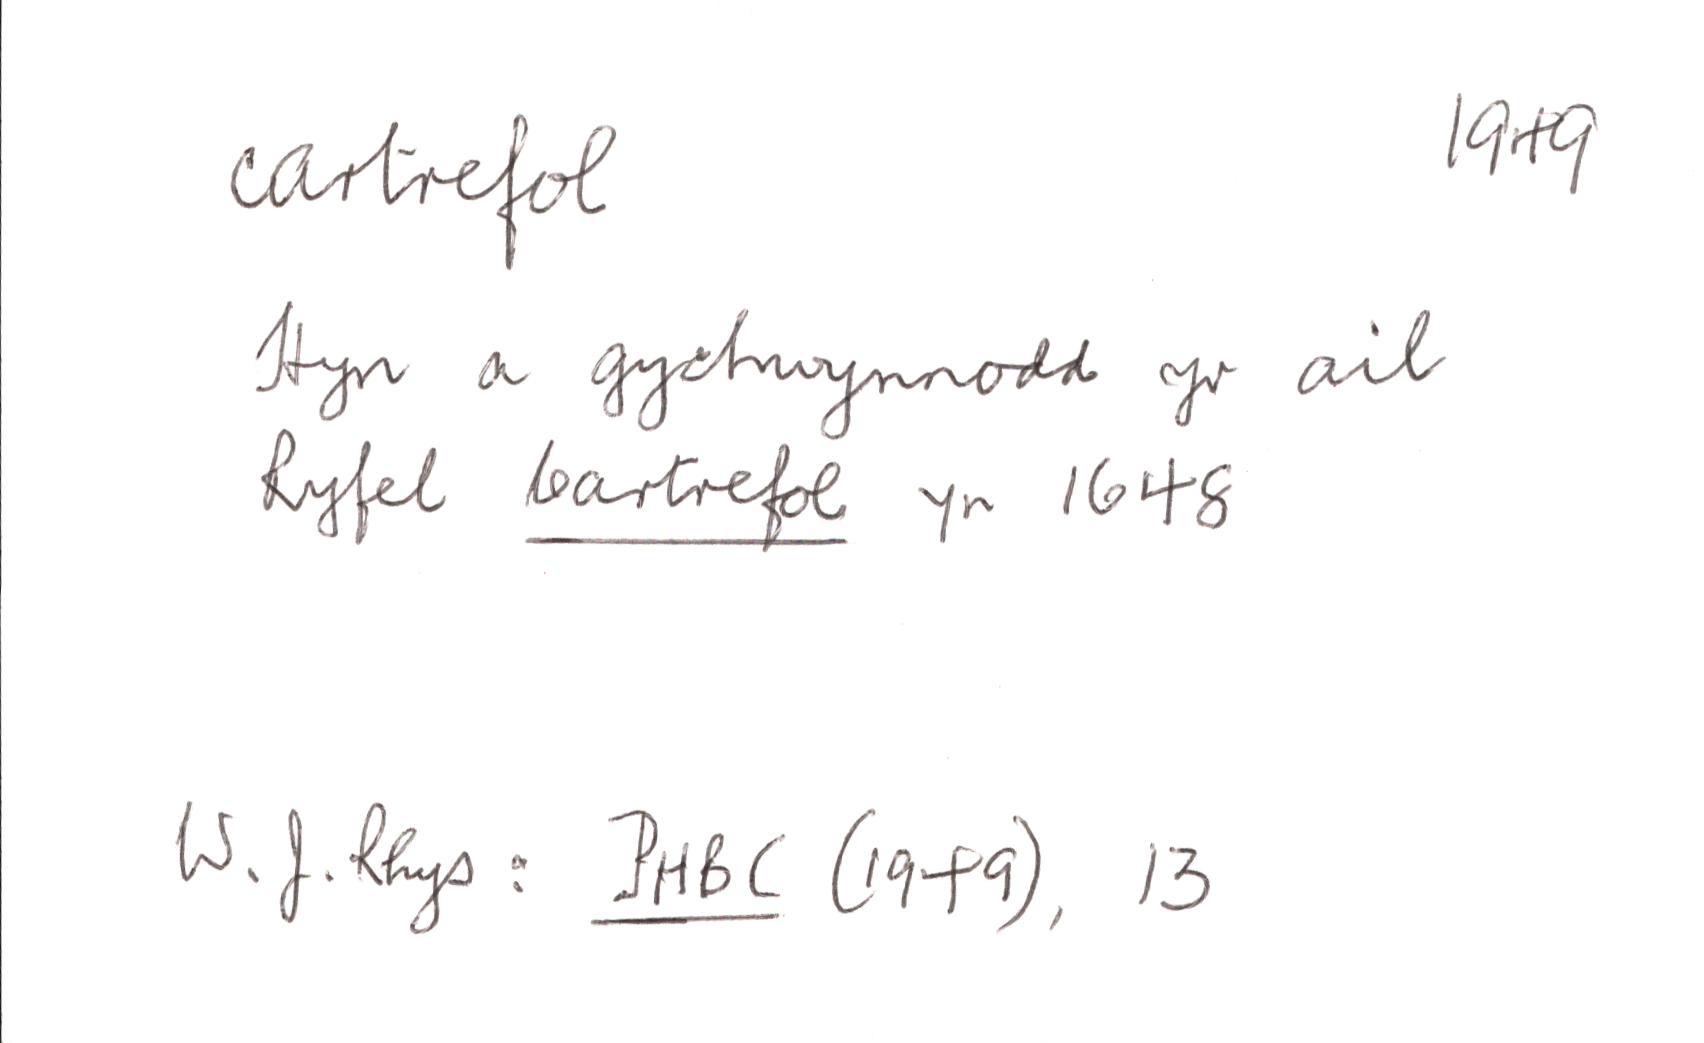 cartrefol 1949
Hyn a gychwynnodd yr ail
Ryfel Cartrefol yn 1648
W. J. Rhys: PHBC (1949), 13